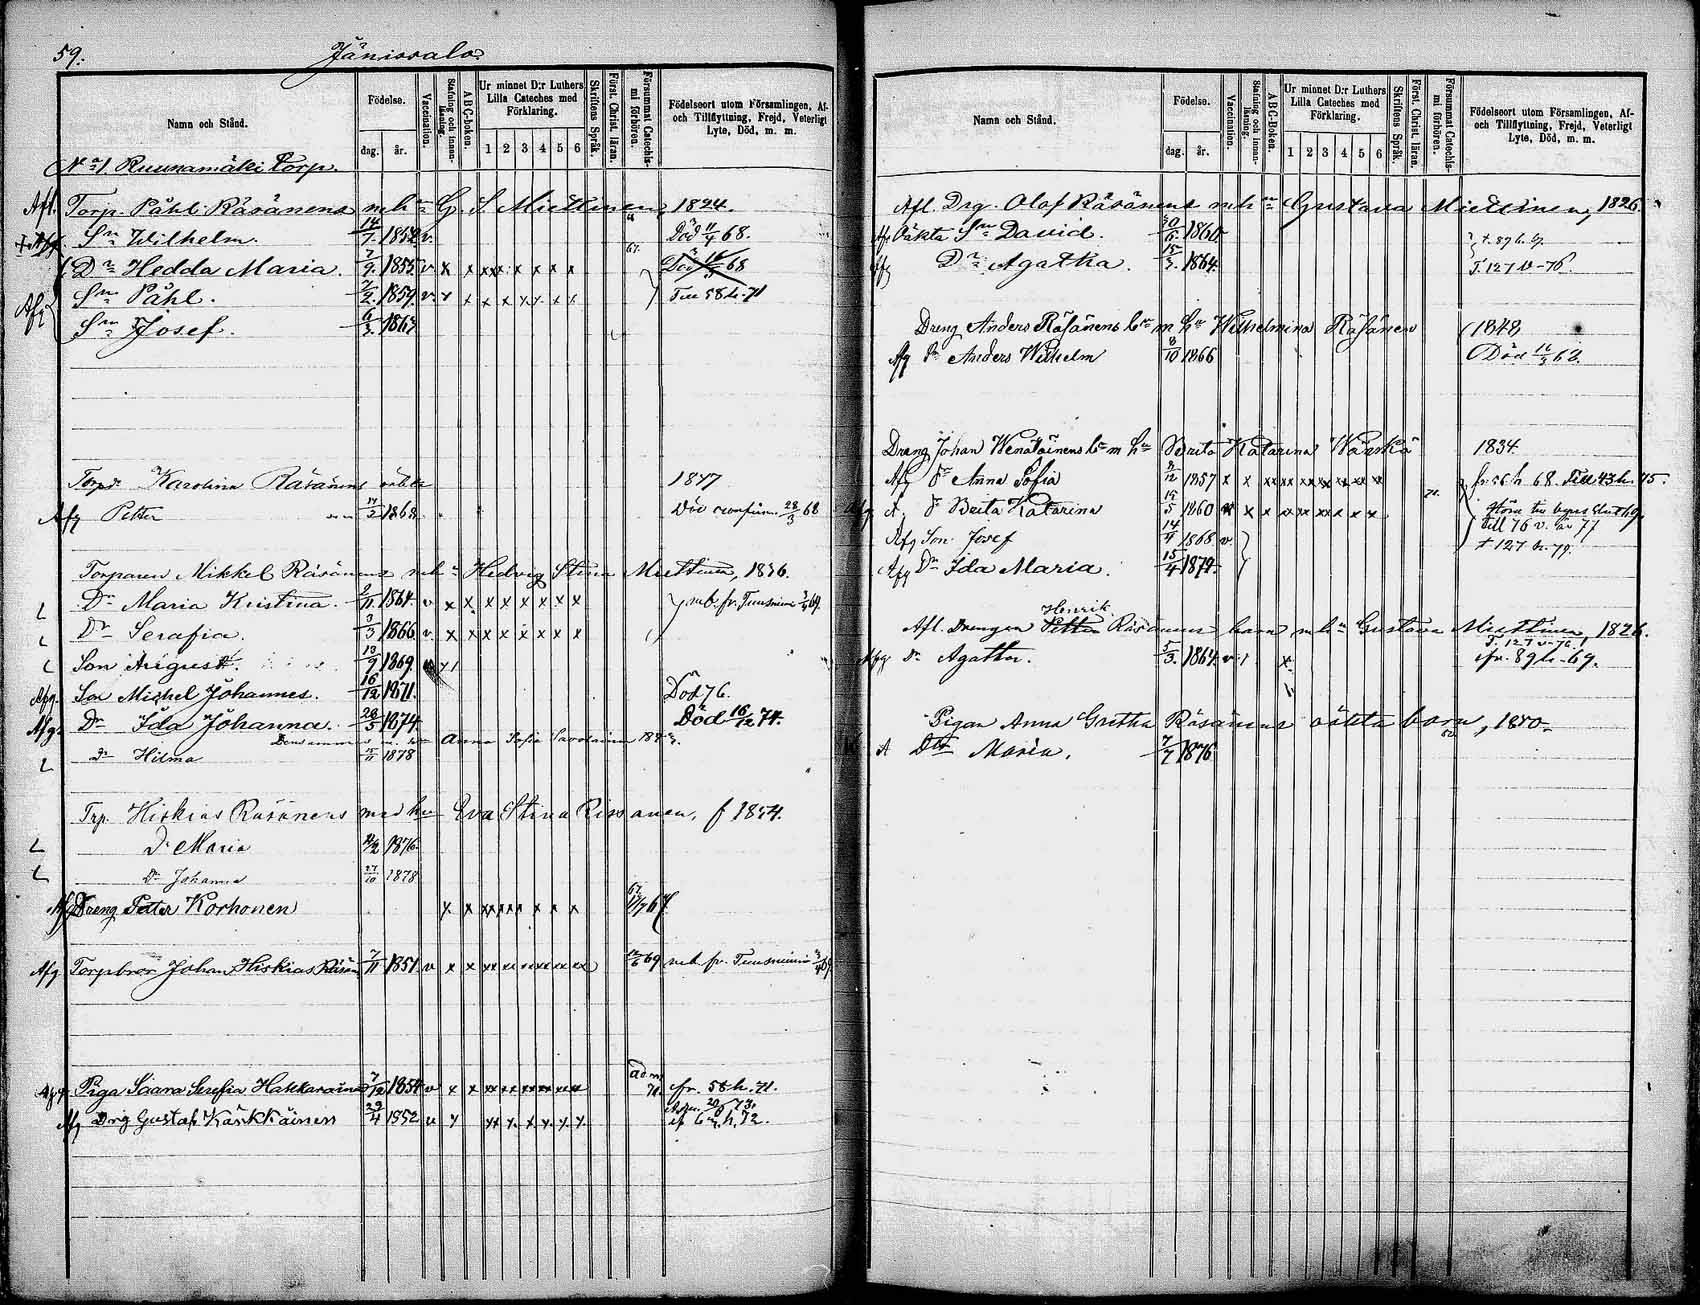 59.
Jänissalo
Namn och Stånd.
Födelse.
dag. år.
Vaccination.
Stafning och innanläsning.
ABC-boken.
Ur minnet D:r Luthers Lilla Cateches med Förklaring.
1 2 3 4 5 6
Skriftens Språk.
Först. Christ. läran.
Försummat Catechismi förhören.
Födelseort utom Församlingen, Af- och Tillflyttning, Frejd, Veterligt Lyte, Död, m. m.
No 1 Ruunamäki Torp.
Afl. Torp. Påhl Räsänens m h G. S. Miettinen, 1824.
+ Afg. Sn Wilhelm. 14/7 1852 v. Död 11/4 68
Dr Hedda Maria. 1855 v x x xxx x x x x
Afg Sn Påhl. 1859 v. x x x x x x x Till 58 h. 71
Sn Josef. 6/3 1867
Torp Karolina Räsänens oäkta 1847
Afg Petter 1868 Död 28/3 68
Torparen Mikkel Räsänens m h Hedvig Stina Miettinen, 1836.
Dr Maria Kristina. 1864 v x x x x x x x x m b. fr. Tuusniemi 69
Dr Serafia. 3/3 1866 v. x x x x x x x x
Son August 13/9 1869
Afg. Son Michel Johannes. 16/12 1871. Död 76.
Afg. Dr Ida Johanna. 28/5 1874 Död 16/12 74.
Densamme m. h Anna Sofia Savolainen
Dr Hilma 15/11 1878
Trp. Hiskias Räsänens med hu Eva Stina Rissanen, f 1854.
Dr Maria 1876
Dr Johanna 27/10 1878
Afg Dreng Petter Korhonen x x xx x x x x x 67
Afg. Torpbror Johan Hiskias Räsän 7/11 1851 v x x xx xx xx xx xx xx 69 m b fr. Tuusniemi
Afg. Piga Saara Serefia Hakkarainen 7/12 1854 v x x xx xx xx xx xx xx adm 71. fr. 58 h. 71.
Afg Drg Gustaf Kärkkäinen 29/4 1852 v x xx x. x x. x. x.
Namn och Stånd.
Födelse.
dag. år.
Vaccination.
Stafning och innanläsning.
ABC-Boken.
Ur minnet D:r Luthers Lilla Cateches med Förklaring.
1 2 3 4 5 6
Skriftens Språk.
Först. Christ. läran.
Försummat Catechismi förhören.
Födelseort utom Församlingen, Af- och Tillflyttning, Frejd, Veterligt Lyte, Död, m. m.
Afl. Drg. Olof Räsänens m h Gustava Miettinen, 1826.
Afg Oäkta Sn David. 1860 t. 89 h. 69.
Afg Dr Agatha. 15/3 1864 T. 127 v - 76.
Dreng Anders Räsänens bn m hu Wilhelmina Räsänen 1848
Afg Sn Anders Wilhelm 8/10 1866 Död 68.
Dreng Johan Wenäläinens bn m hu Brita Katarina Wänskä 1834.
Afg Dr Anna Sofia 8/12 1857 x x xx xx xx xx xx xx fr. 56 h 68. Till 43 h. 75.
A. Dr Brita Katarina 15/5 1860 x x x xx xx x x x 71.
till 76 v. år 77
Afg Son Josef 14/4 1868 v. t 127 h. 79.
Afg Dr Ida Maria. 15/4 1872
Henrik
Afl. Drengen Petter Räsänens barn m hu Gustava Miettinen, 1826.
T. 127 v - 76.
Afg Dr Agatha. 5/3. 1864 v fr. 89 h. - 69.
Pigan Anna Gretha Räsänens oäkta barn, 1850.
A Dtr Maria. 7/7 1876